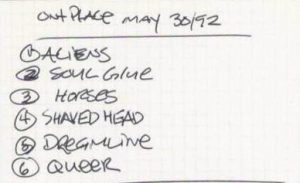 ONT PLACE MAY 30/92
① ALIENS
② SOUL GLUE
③ HORSES
④ SHAVED HEAD
⑤ DREAMLINE
⑥ QUEER